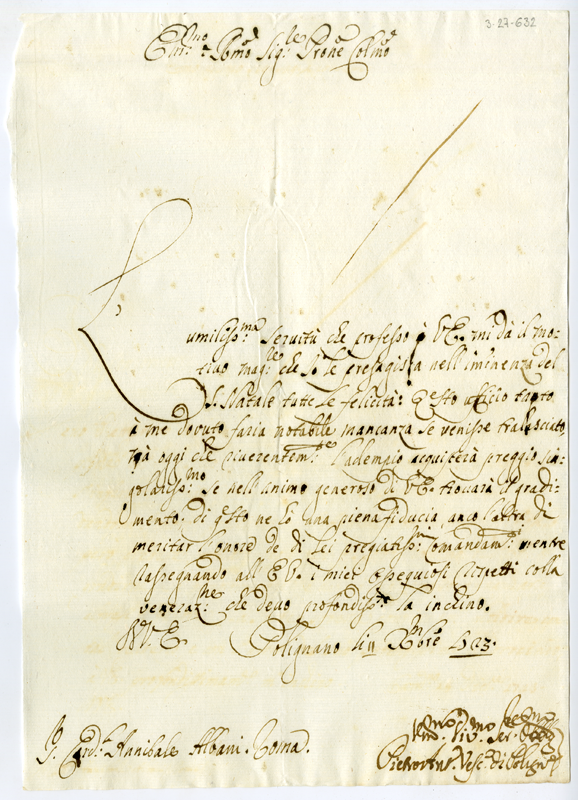 3-27-632
Em.mo e Rmo Sig.re Prone Colmo
L'umiliss.ma servitù che professo à V.E. mi dà il mo-
tivo mag.re che Io le presagisca nell'iminenza del
S. Natale tutte le felicità: Questo ufficio tanto
à me dovuto saria notabile mancanza se venisse tralasciato
mà oggi che riverentem.te l'adempio acquisterà preggio sin-
golariss.mo se nell'animo generoso di V.E. trovarà il gradi-
mento: di questo ne hò una piena fiducia, anco l'altra di
meritar l'onore de di Lei pregiatiss.mi comandam.ti mentre
rassegnando all'E.V. i miei ossequiosi rispetti colla
veneraz.ne che devo profondiss.te la inchino.
D V.E. Polignano li 11 Xmbre 1723.
Sr. Card.l Annibale Albani. Roma.
Um.mo Div.mo Ser.
Pietro Ant.o Vesc.o di Polign.o